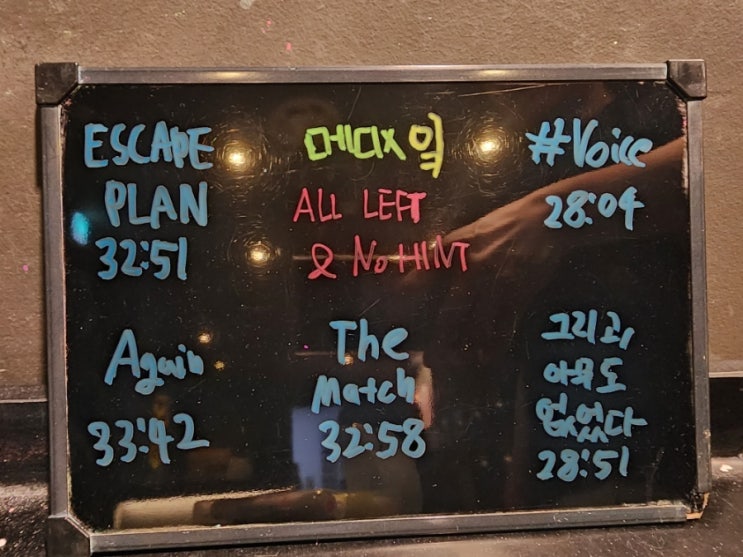 ESCAPE
PLAN
32:51
대디X옆
ALL LEFT
& No HINT
#Voice
28:04
Again
33:42
The
Match
32:58
그리고,
아무도
없었다
28:51